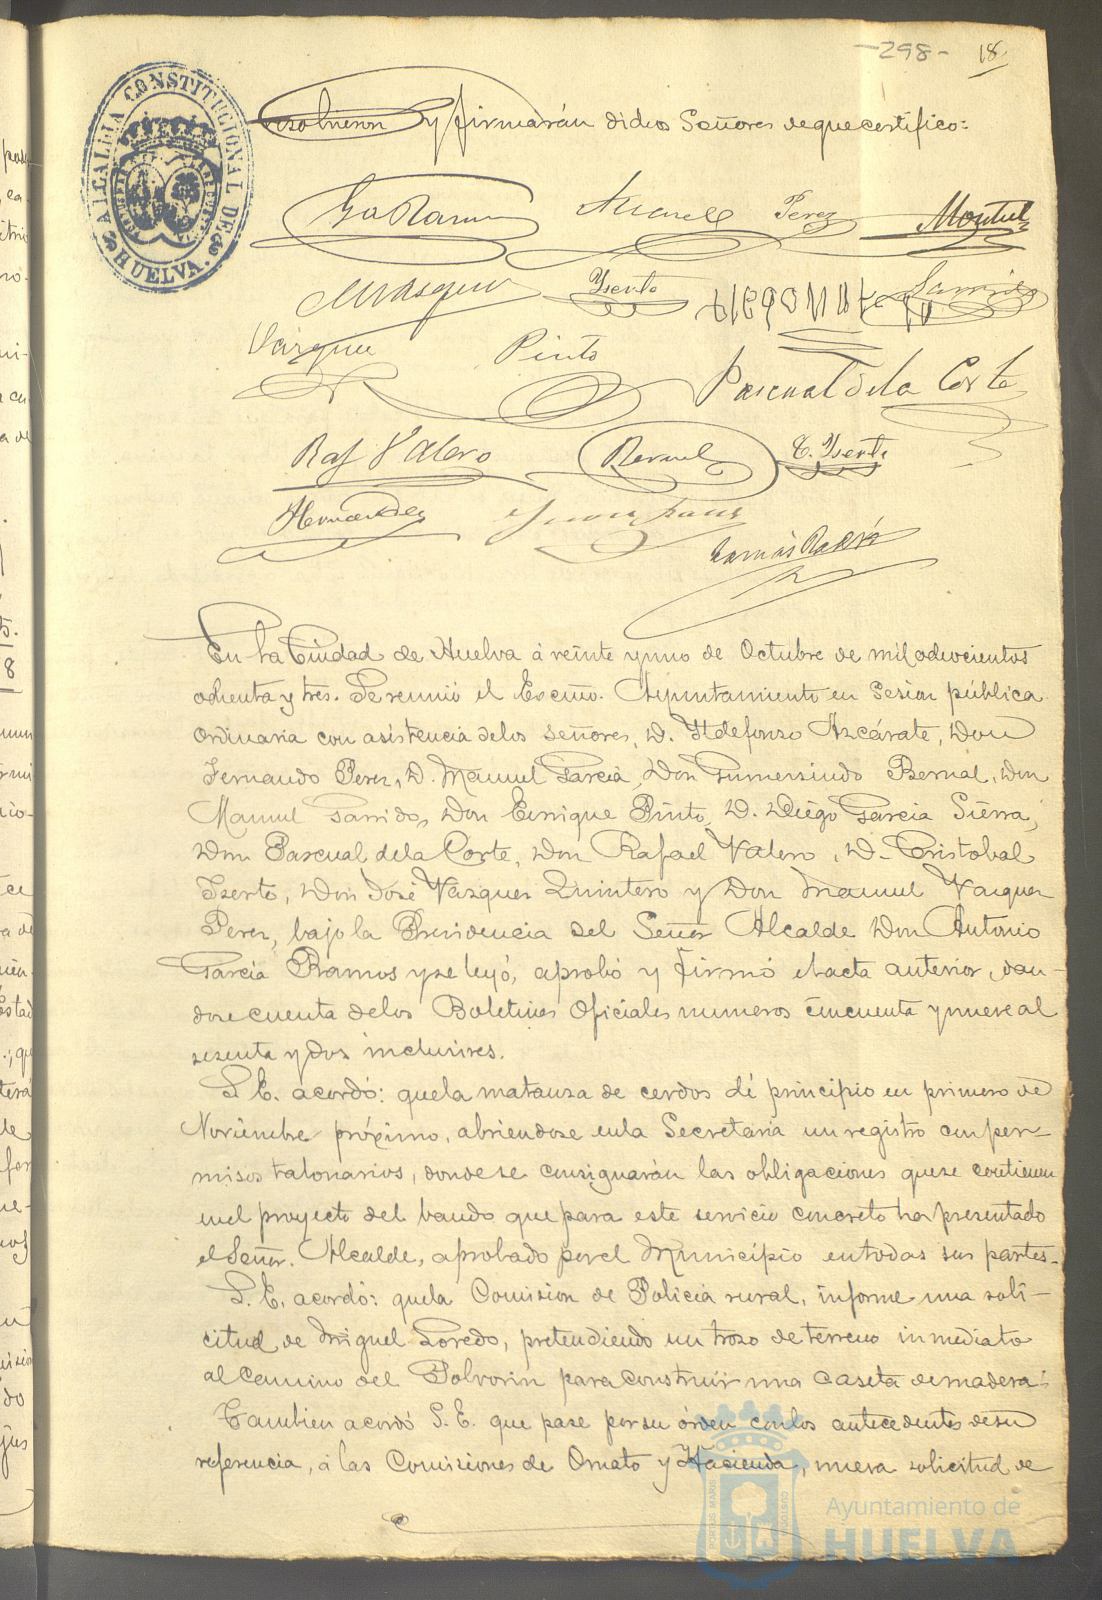 -298- 18
ALCALDIA CONSTITUCIONAL DE HUELVA.
resolvieron y firmarán dichos Señores de que certifico:
Ga Ramos Perez Montiel
Yserte Garrido
Vazquez Pinto Pascual de la Corte
Raf Valero Bernal C. Yserte
Hernandez
Tomás
En la Ciudad de Huelva á veinte y uno de Octubre de mil ochocientos
ochenta y tres. Se reunió el Excmo. Ayuntamiento en sesion pública
ordinaria con asistencia de los señores, D. Yldefonso Azcárate, Don
Fernando Perez, D. Manuel Garcia, Don Gumersindo Bernal, Don
Manuel Garrido, Don Enrique Pinto, D. Diego Garcia Sierra,
Don Pascual de la Corte, Don Rafael Valero, D. Cristobal
Yserte, Don José Vazquez Quintero y Don Manuel Vazquez
Perez, bajo la Presidencia del Señor Alcalde Don Antonio
Garcia Ramos y se leyó, aprobó y firmó el acta anterior, dan-
dose cuenta de los Boletines Oficiales numeros cincuenta y nueve al
sesenta y dos inclusives.
S. E. acordó: que la matanza de cerdos dé principio en primero de
Noviembre próximo, abriendose en la Secretaria un registro con per-
misos talonarios, donde se consignarán las obligaciones que se contienen
en el proyecto del bando que para este servicio concreto ha presentado
el Señor. Alcalde, aprobado por el Municipio en todas sus partes.
S. E. acordó: que la Comision de Policia rural, informe una soli-
citud de Miguel Loredo, pretendiendo un trozo de terreno inmediato
al Camino del Polvorin para construir una caseta de madera.
Tambien acordó S. E. que pase por su órden con los antecedentes de su
referencia, á las Comisiones de Ornato y Hacienda, nueva solicitud de
Ayuntamiento de
HUELVA